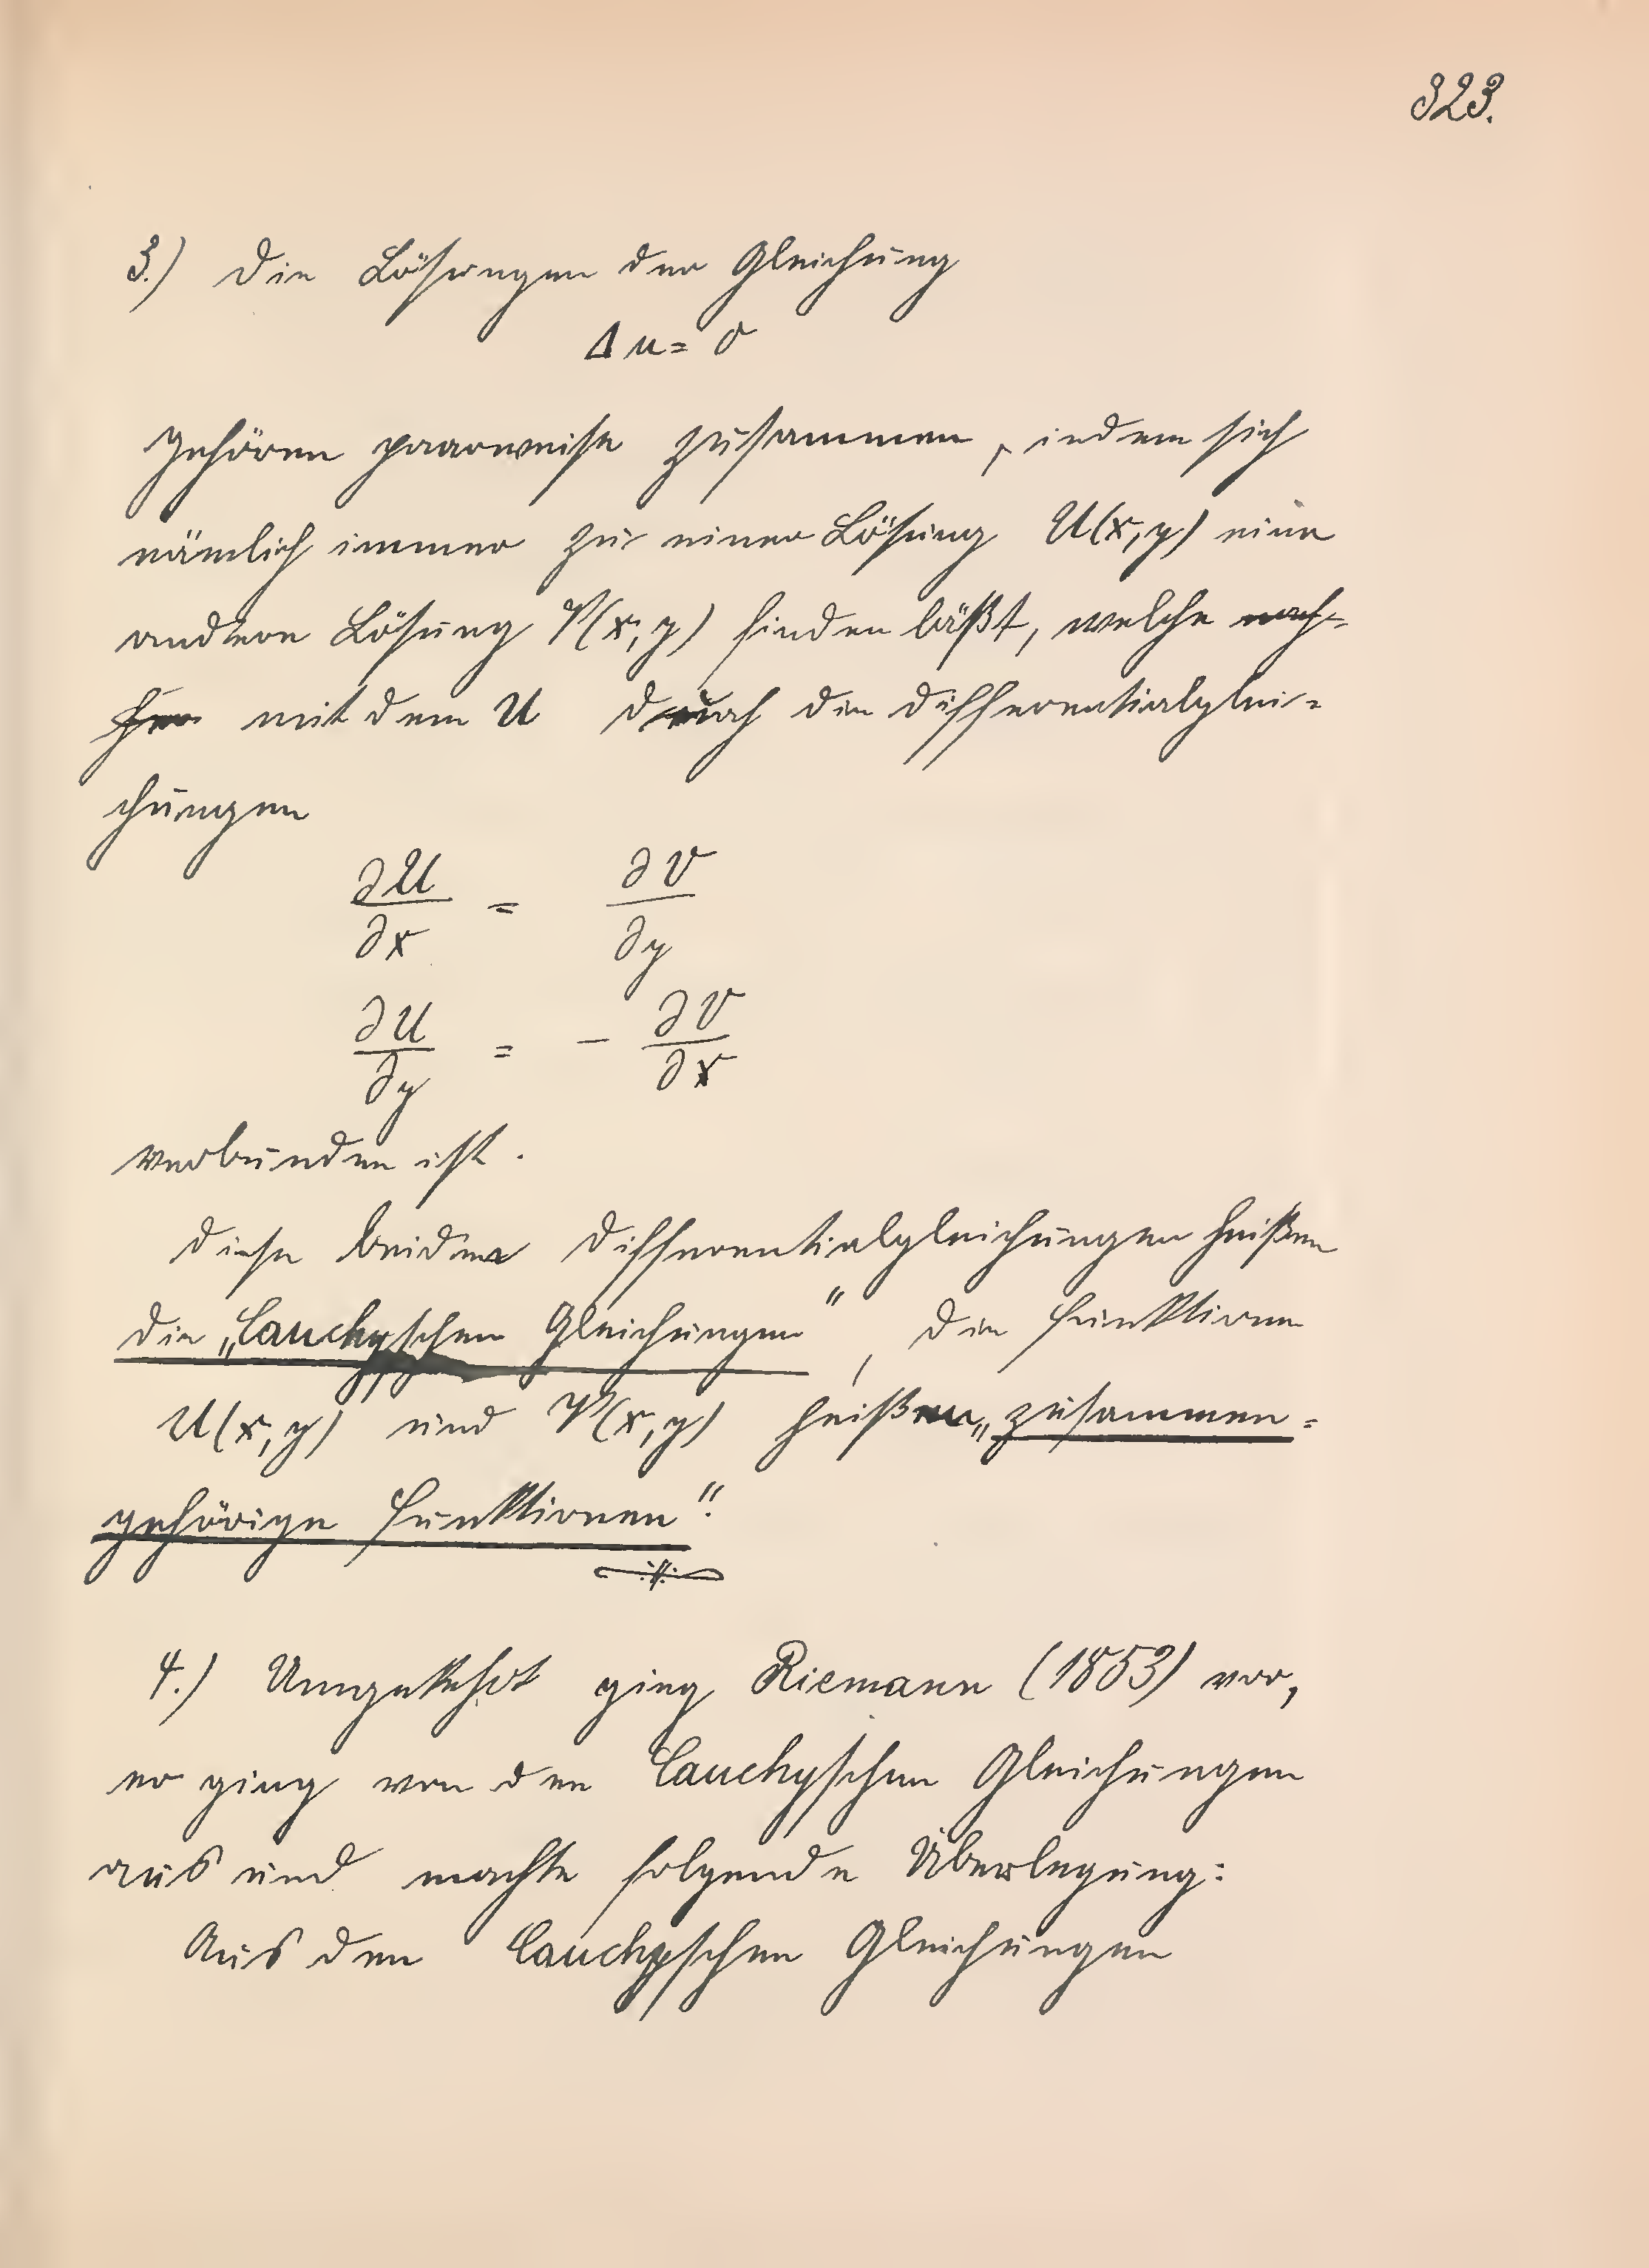 323.
3.) Die Lösungen der Gleichung
Δu = 0
gehören paarweise zusammen, indem sich
nämlich immer zu einer Lösung U(x,y) eine
andere Lösung V(x,y) finden läßt, welche
mit dem U durch die Differentialglei-
chungen
∂U/∂x = ∂V/∂y
∂U/∂y = - ∂V/∂x
verbunden ist.
Diese beiden Differentialgleichungen heißen
die „Cauchyschen Gleichungen“, die Funktionen
U(x,y) und V(x,y) heißen „zusammen-
gehörige Funktionen“.
4.) Umgekehrt ging Riemann (1853) vor,
er ging von den Cauchyschen Gleichungen
aus und machte folgende Überlegung:
Aus den Cauchyschen Gleichungen